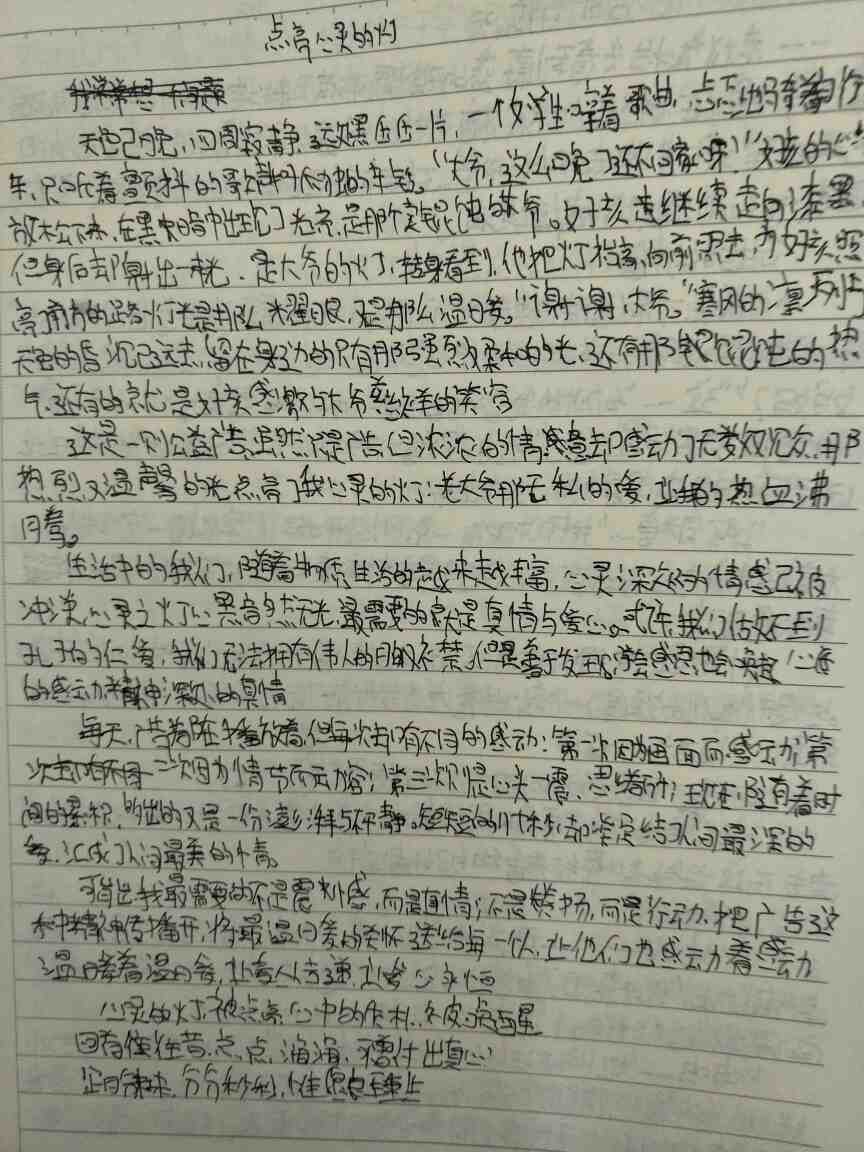 点亮心灵的灯
天色已晚,四周寂静,远处黑压压一片,一个女学生哼着歌曲,忐忑地骑着自行
车,只听着颤抖的歌声和的车链。"大爷,这么晚了还不回家呀!"女孩的心
放松下来,在黑暗中出现了光亮,是那个卖馄饨的大爷。女孩继续走向漆黑,
但身后却射出一束光,是大爷的灯,转身看到,他把灯抬高,向前照去,为女孩照
亮前方的路,灯光是那么耀眼,又是那么温暖。"谢谢,大爷。"寒风的凛冽
天色的昏沉已远去,留在身边的只有那强烈又柔和的光,还有那馄饨的热
气,还有的就是女孩感激与大爷慈祥的笑容
这是一则公益广告,虽然只是广告,但浓浓的情感意却感动了无数观众,那
热烈又温馨的光点亮了我心灵的灯:老大爷那无私的爱,让我的热血沸
腾着。
生活中的我们,随着物质生活的越来越丰富,心灵深处的情感已被
冲淡,心灵之灯黯然无光,最需要的就是真情与爱心。或许我们做不到
孔子的仁爱,我们无法拥有伟人的胸襟,但是善于发现,学会感恩,也会唤起心底
的感动,精神深处的真情
每天,广告都在播放着,但每次却有不同的感动:第一次因为画面而感动,第
二次因为情节而动容;第三次,心头一震,思绪;现在,随着时
间的累积,的又是一份澎湃与平静。短短的几十秒,却凝结了人间最深的
爱,汇成了人间最美的情。
可指出,我最需要的不是震感,而是真情;不是赞扬,而是行动,把广告这
种精神传播开,将最温暖的关怀送给每一个人,让他们也感动着感动
温暖着温暖,让爱心传递,让爱心永恒
心灵的灯被点亮,心中的
回首往昔,点点滴滴,需付出真心
,分分秒秒,